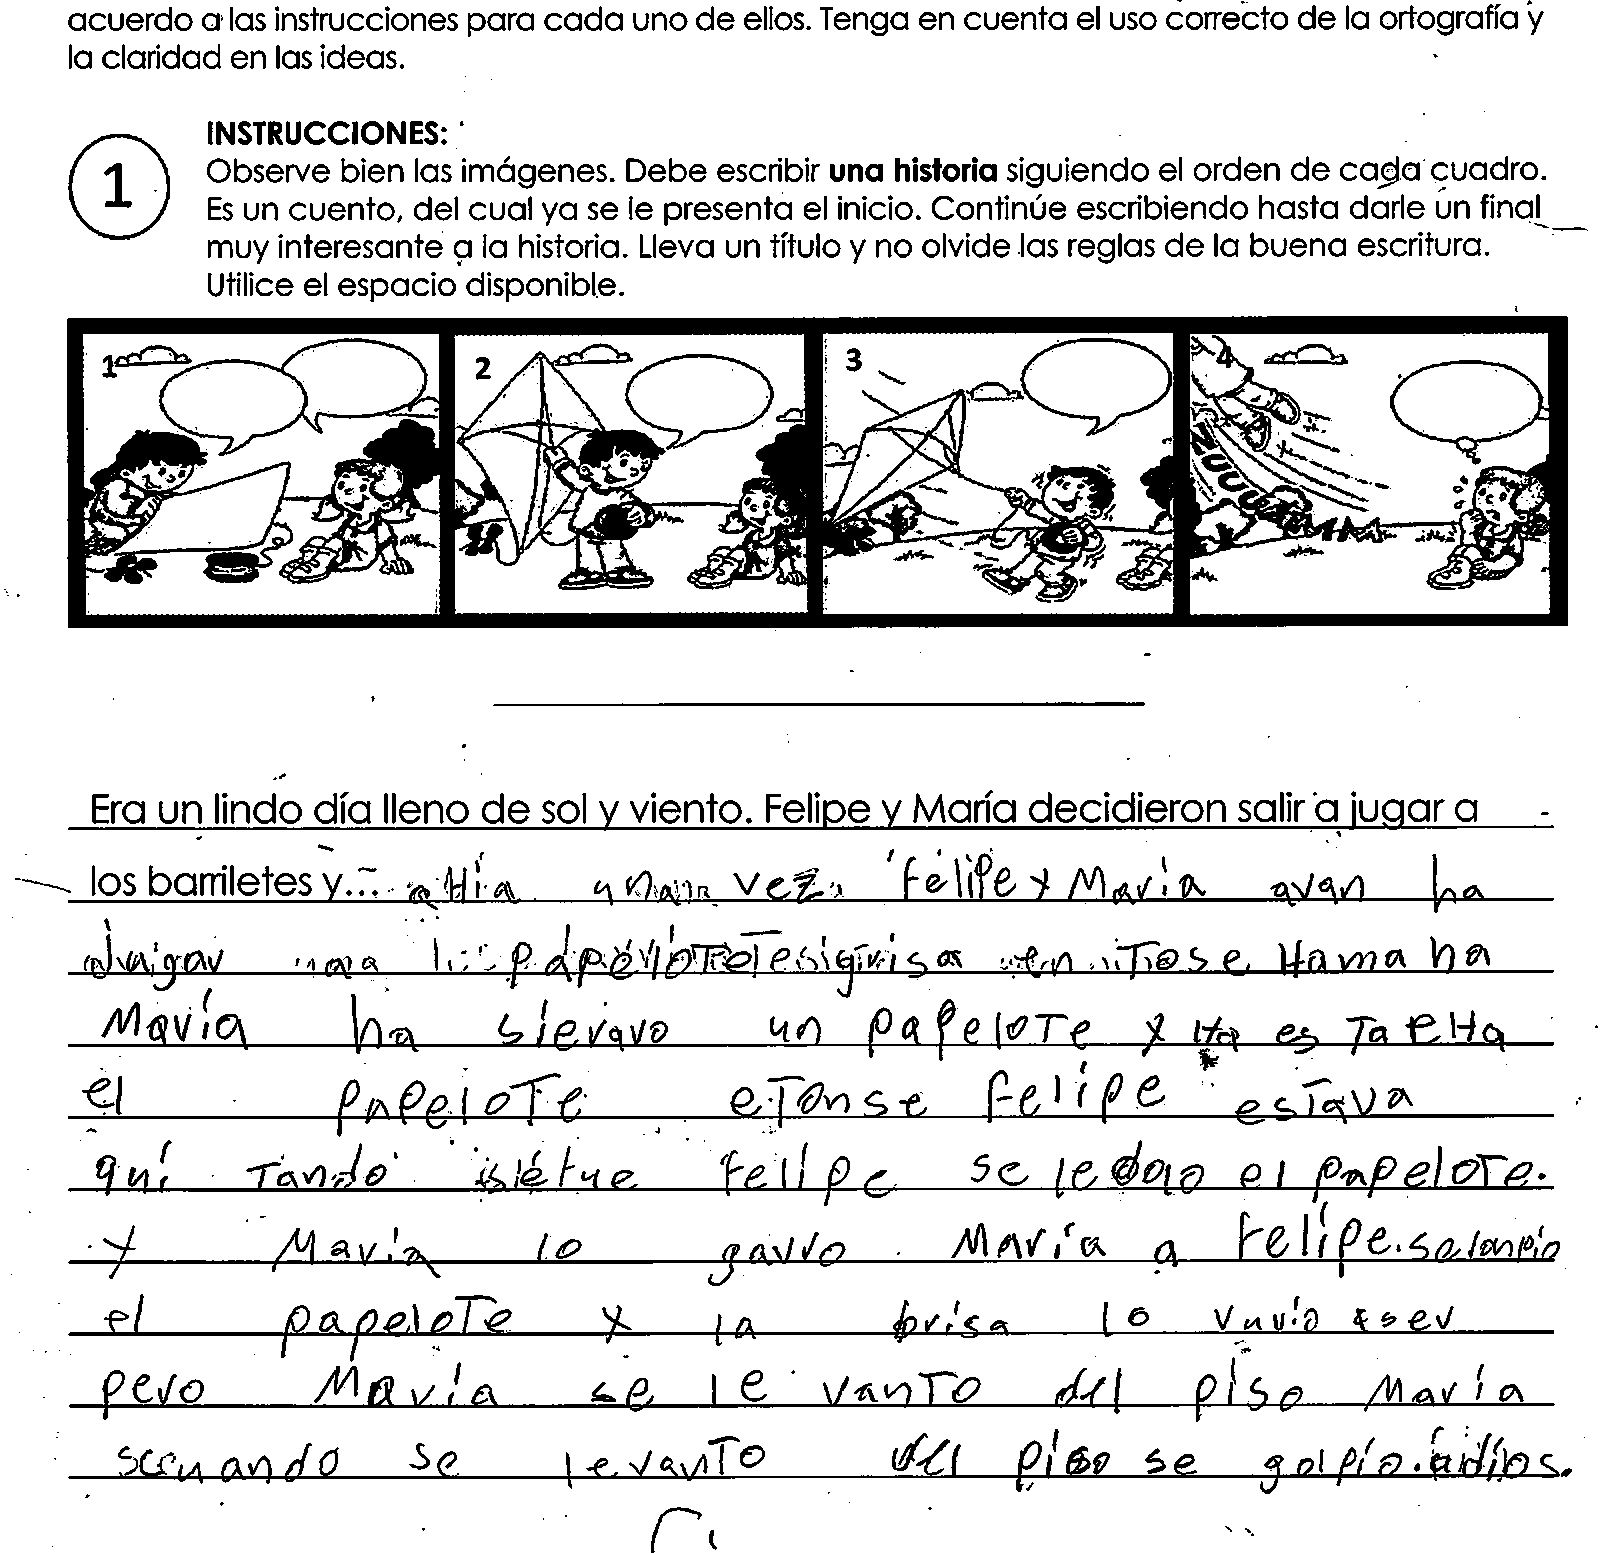 acuerdo a las instrucciones para cada uno de ellos. Tenga en cuenta el uso correcto de la ortografía y
la claridad en las ideas.
1
INSTRUCCIONES:
Observe bien las imágenes. Debe escribir una historia siguiendo el orden de cada cuadro.
Es un cuento, del cual ya se le presenta el inicio. Continúe escribiendo hasta darle un final
muy interesante a la historia. Lleva un título y no olvide las reglas de la buena escritura.
Utilice el espacio disponible.
1 2 3 4
ZUUU
Era un lindo día lleno de sol y viento. Felipe y María decidieron salir a jugar a
los barriletes y... vez Felipe y María avan ha
en Tose Hama ha
María ha un papelote y es Ta
el papelote eTonse Felipe estava
qui Tando Felipe se le el papelote.
y Maria lo garro María a Felipe.
el papelote y la brisa lo
pero María se le vanto del piso María
se levanto del piso se golpio. adios.